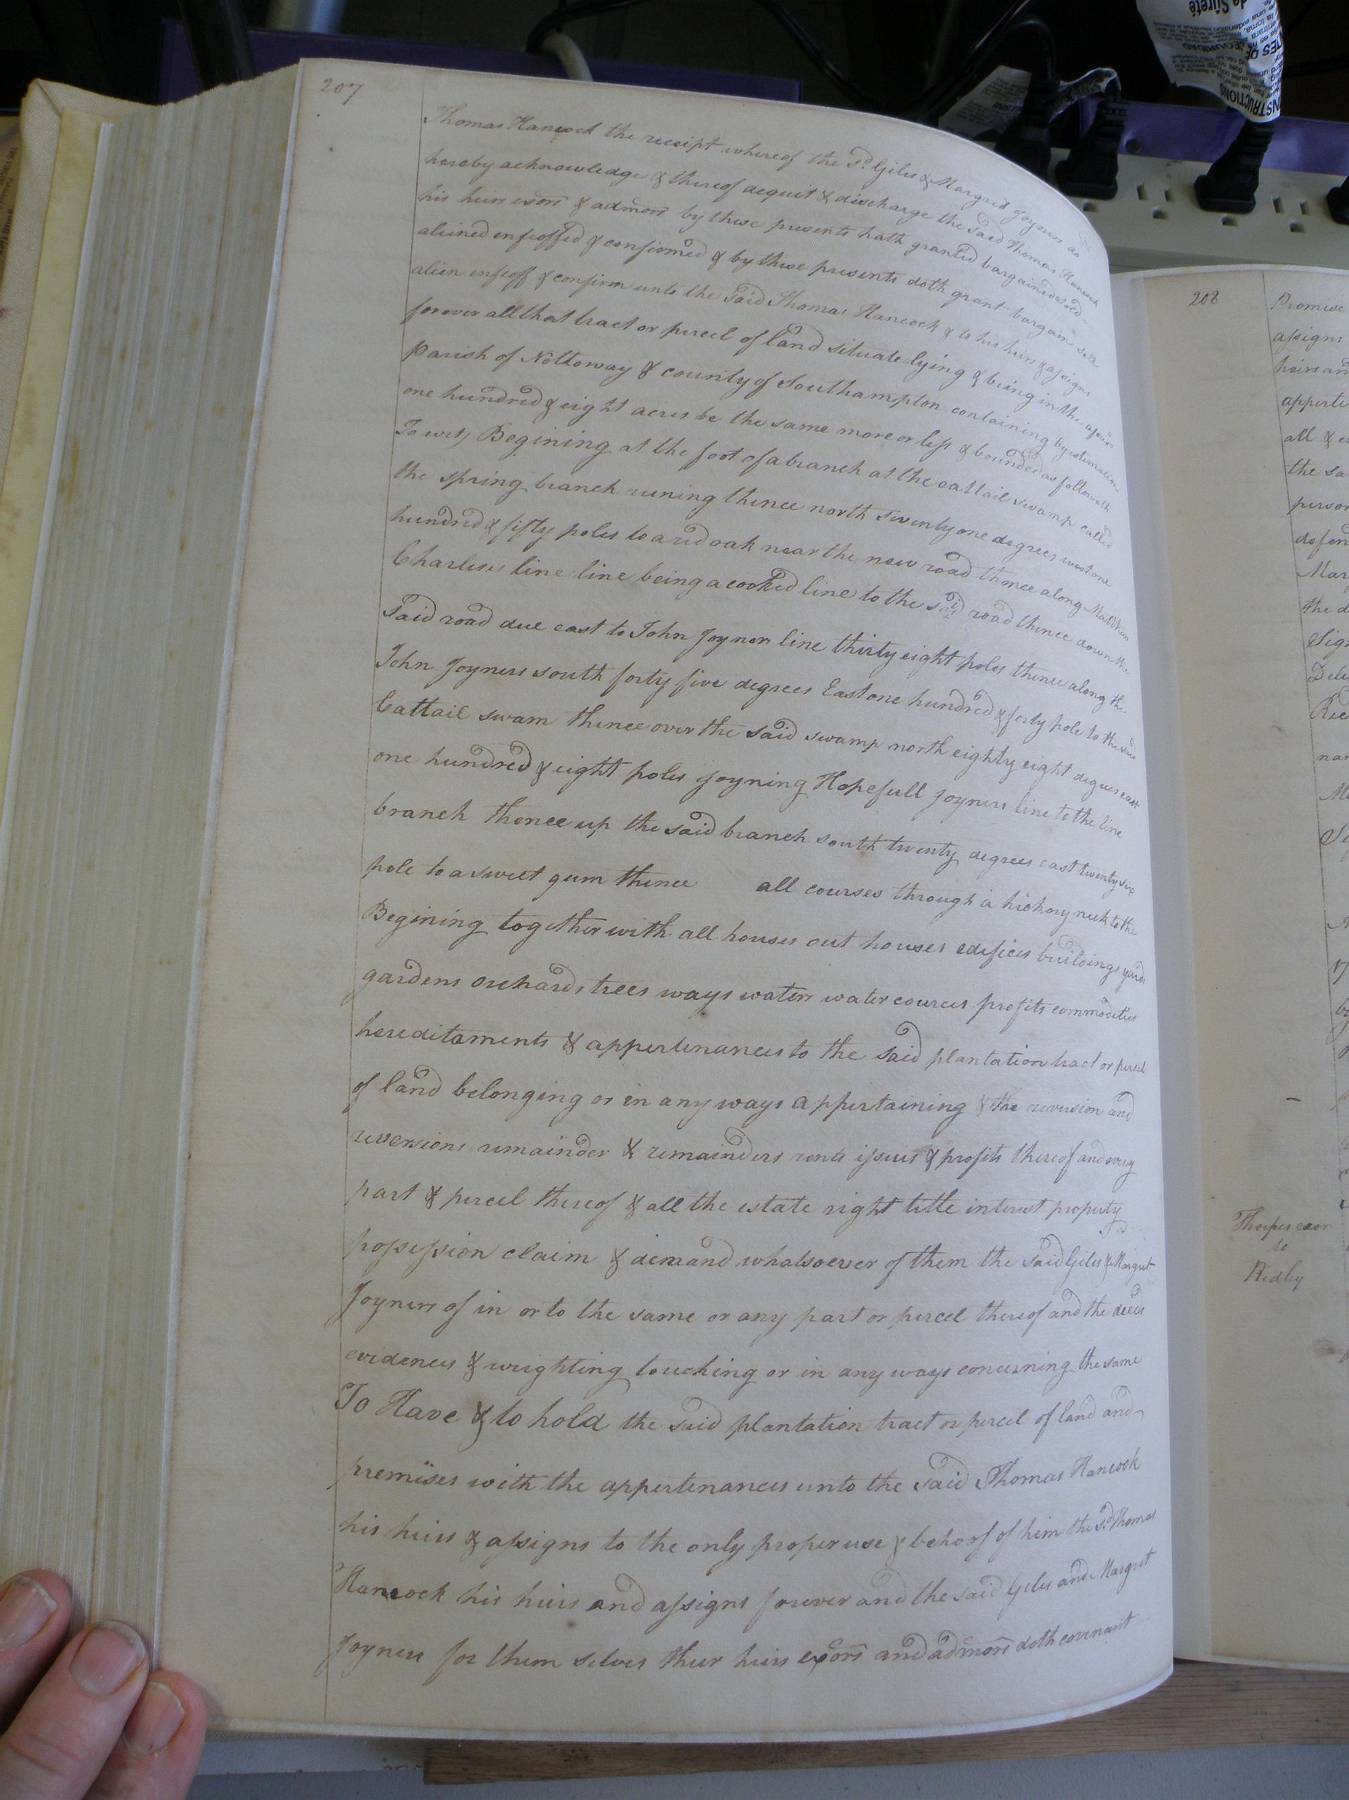 207
Thomas Hancock the receipt whereof the sd. Giles & Margret Joyners do
hereby acknowledge & thereof acquit & discharge the said Thomas Hancock
his heirs exors & admors by these presents hath granted bargained sold
aliened enfeoffed & confirmed & by these presents doth grant bargain sell
alien enfeoff & confirm unto the said Thomas Hancock & to his heirs & assigns
forever all that tract or percel of land situate lying & being in the
parish of Nottoway & county of Southampton containing by estimation
one hundred & eight acres be the same more or less & bounded as followeth
To wit, Begining at the foot of a branch at the cattail swamp called
the spring branch runing thence north seventy one degrees west one
hundred & fifty poles to a red oak near the new road thence along Matthew
Charleses line line being a cooked line to the sd. road thence down the
said road due east to John Joyners line thirty eight poles thence along the
John Joyners south forty five degrees East one hundred & forty pole to the said
Cattail swam thence over the said swamp north eighty eight degrees east
one hundred & eight poles Joyning Hopefull Joyners line to the line
branch thence up the said branch south twenty degrees east twenty six
pole to a sweet gum thence all courses through a hickory neck to the
Begining together with all houses out houses edifices buildings yards
gardens orchards, trees ways waters water courses profits commodities
hereditaments & appertenances to the said plantation tract or percel
of land belonging or in any ways appertaining & the reversion and
reversions remainder & remainders rents issues & profits thereof and every
part & percel thereof & all the estate right title interest property
possession claim & demand whatsoever of them the said Giles & Margret
Joyners of in or to the same or any part or percel thereof and the deeds
evidences & wrighting touching or in any ways concerning the same
To Have & to hold the said plantation tract or percel of land and
premises with the appertenances unto the said Thomas Hancock
his heirs & assigns to the only proper use & behoof of him the sd. Thomas
Hancock his heirs and assigns forever and the said Giles and Margret
Joyners for them selves their heirs exors and admors doth covenant
208
Promise
assigns
heirs and
apperte
all & e
the sa
person
defen
Mar
the d
Sign
Deli
Rec
Thorpes exor
to
Ridley